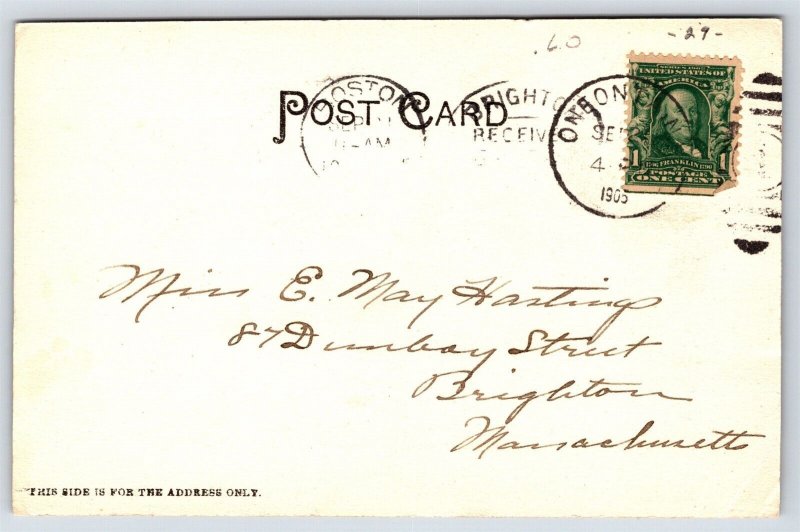 .60 -29-
POST CARD
BOSTON
SEP
AM
BRIGHTO
RECEIVE
ONSON
SE
4
1905
SERIES 1902
UNITED STATES OF
AMERICA
FRANKLIN
1 POSTAGE 1
ONE CENT
Miss E. May Hastings
87 Dunboy Street
Brighton
Massachusetts
THIS SIDE IS FOR THE ADDRESS ONLY.